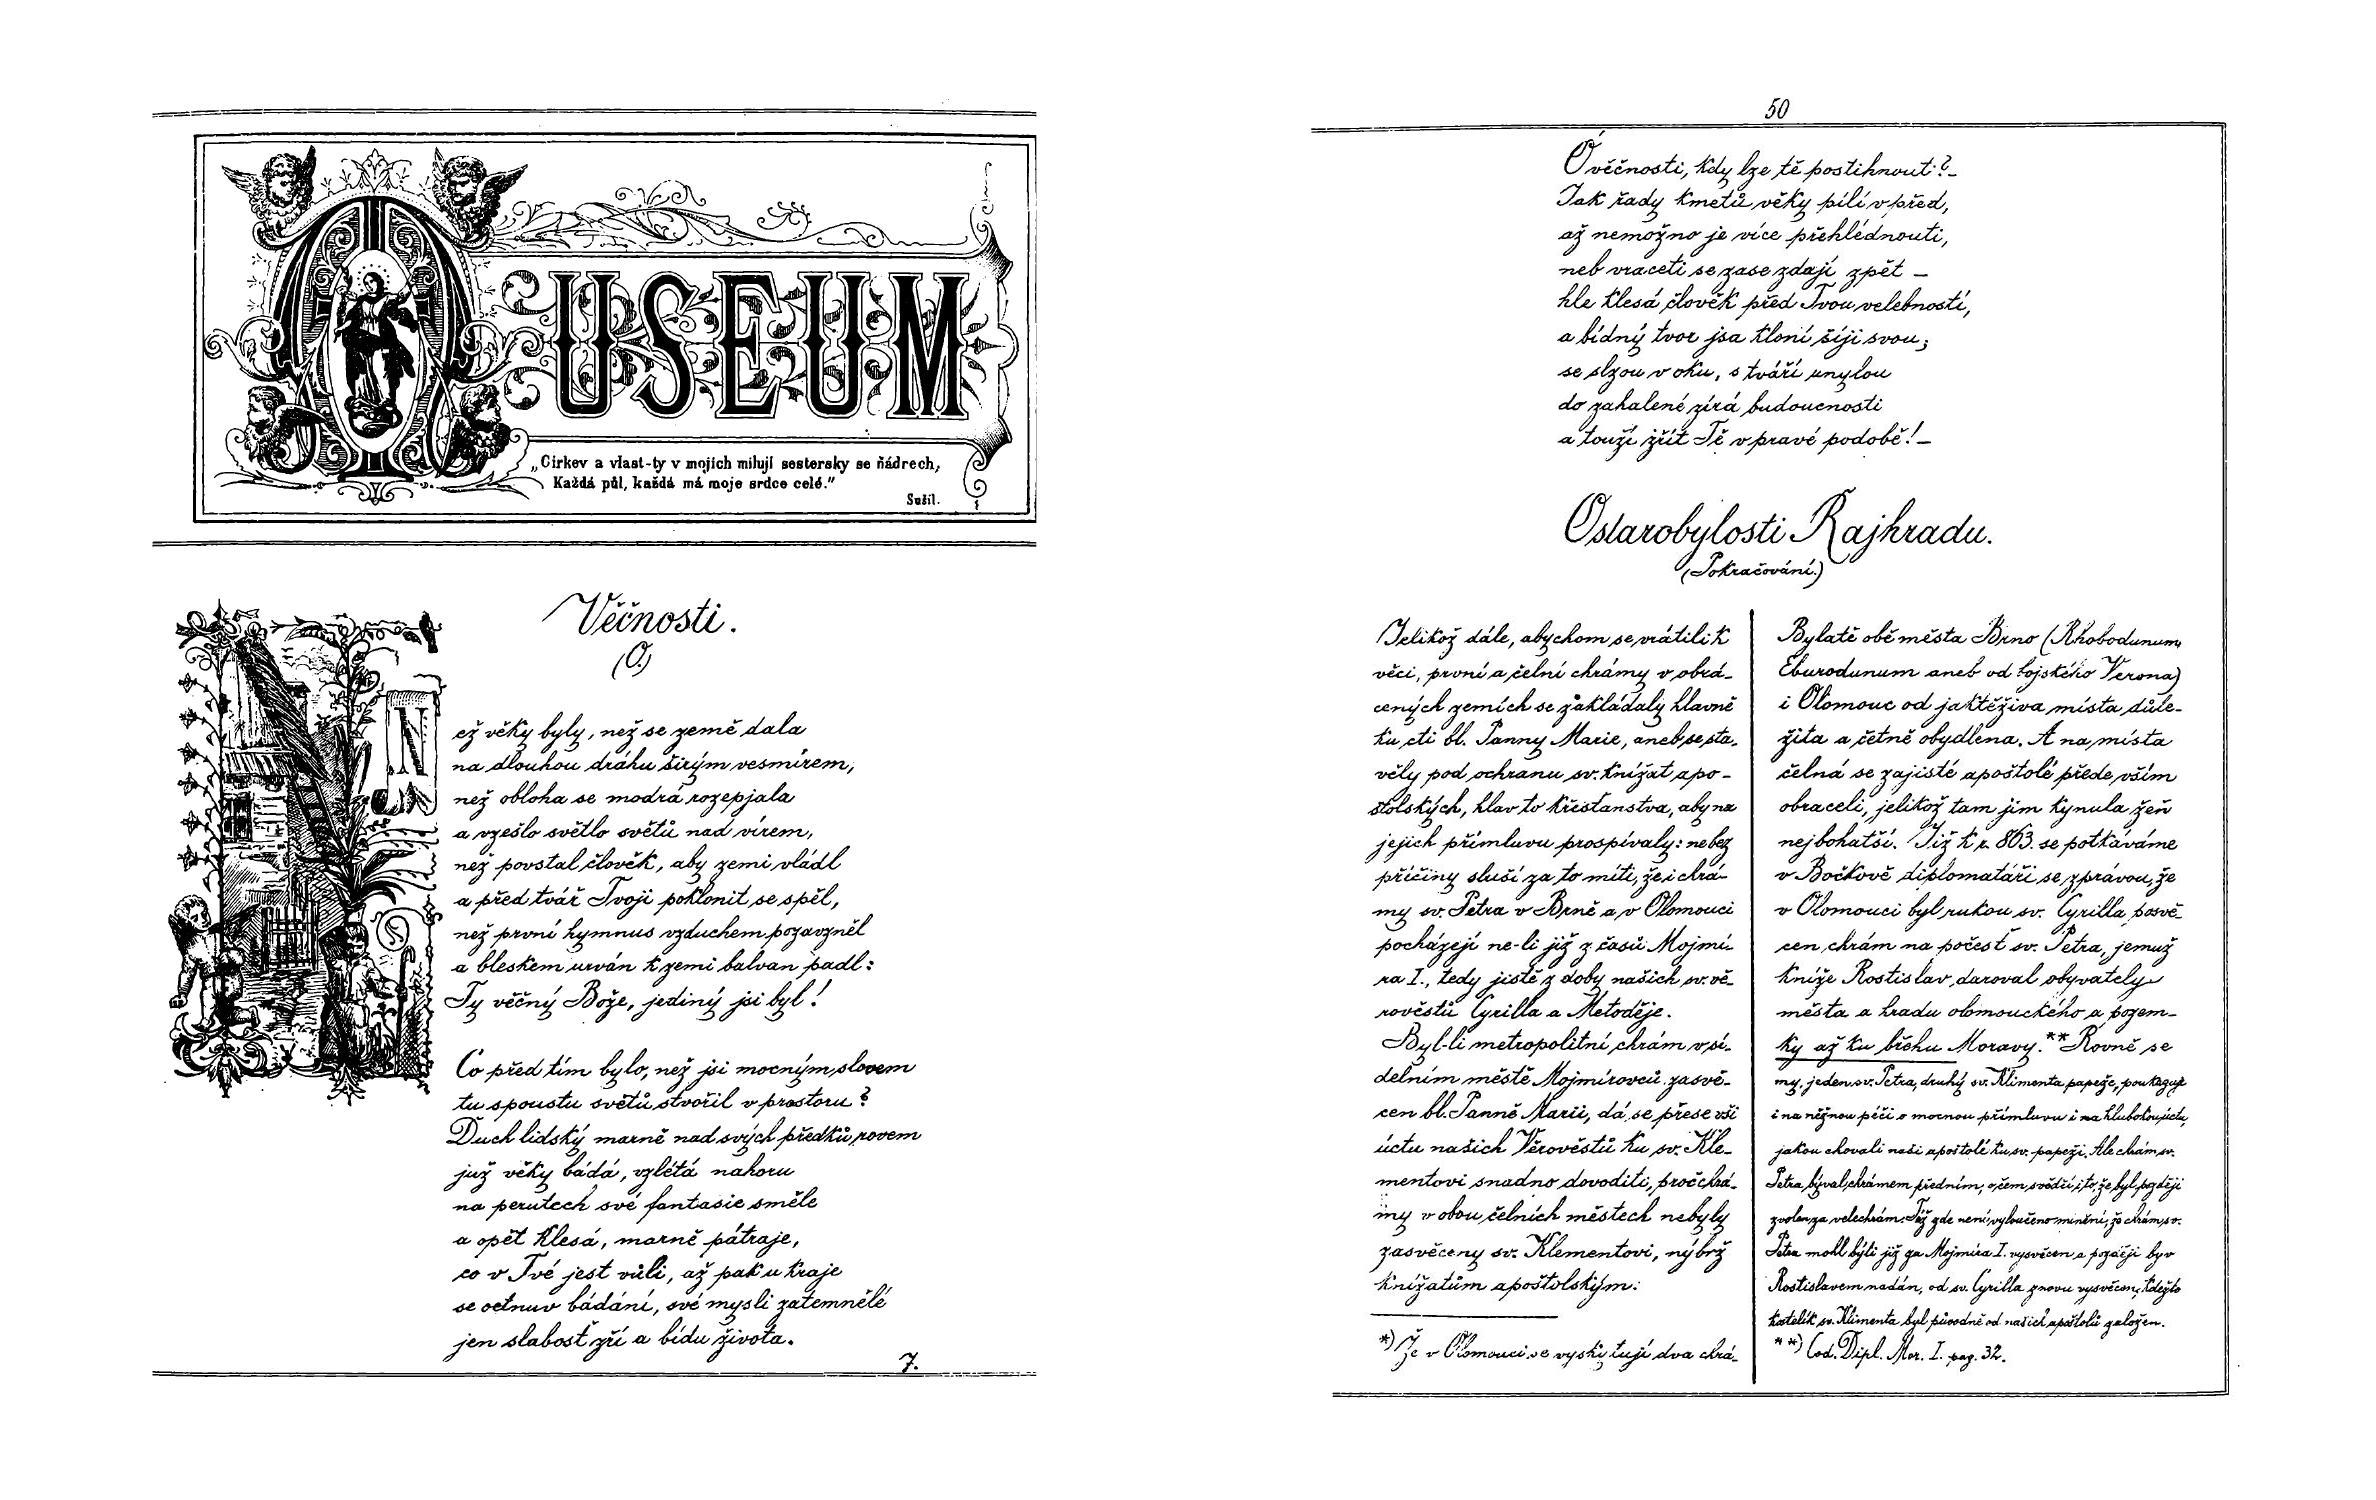 MUSEUM
„Církev a vlast - ty v mojích milují sestersky se ňádrech,
Každá půl, každá má moje srdce celé.”
Sušil.
Věčnosti.
(O.)
Než věky byly, než se země dala
na dlouhou dráhu širým vesmírem,
než obloha se modrá rozepjala
a vzešlo světlo světů nad vírem,
než povstal člověk, aby zemi vládl
a před tvář Tvoji poklonit se spěl,
než první hymnus vzduchem pozavzněl
a bleskem urván k zemi balvan padl:
Ty věčný Bože, jediný jsi byl!
Co před tím bylo, než jsi mocným slovem
tu spoustu světů stvořil v prostoru?
Duch lidský marně nad svých předků rovem
juž věky bádá, vzlétá nahoru
na perutech své fantasie směle
a opět klesá, marně pátraje,
co v Tvé jest vůli, až pak u kraje
se octnuv bádání, své mysli zatemnělé
jen slabosť zří a bídu života.
7.
50
Ó věčnosti, kdy lze tě postihnouti? –
Jak řady kmetů věky pílí v před,
až nemožno je více přehlédnouti,
neb vraceti se zase zdají zpět –
hle klesá člověk před Tvou velebností,
a bídný tvor jsa kloní šíji svou;
se slzou v oku, s tváří unylou
do zahalené zírá budoucnosti
a touží zřít Tě v pravé podobě! –
O starobylosti Rajhradu.
(Pokračování.)
Jelikož dále, abychom se vrátili k
věci, první a čelní chrámy v obrá-
cených zemích se zakládaly hlavně
ku cti bl. Panny Marie, aneb se sta-
věly pod ochranu sv. knížat apo-
štolských, hlav to křesťanstva, aby na
jejich přímluvu prospívaly: ne bez
příčiny sluší za to míti, že i chrá-
my sv. Petra v Brně a v Olomouci
pocházejí ne-li již z časů Mojmí-
ra I., tedy jistě z doby našich sv. vě-
rověstů Cyrilla a Metoděje.
Byl-li metropolitní chrám v sí-
delním městě Mojmírovců zasvě-
cen bl. Panně Marii, dá se přese vši
úctu našich Věrověstů ku sv. Kle-
mentovi snadno dovoditi, proč chrá-
my v obou čelních městech nebyly
zasvěceny sv. Klementovi, nýbrž
knížatům apoštolským:
*) Že v Olomouci se vyskytují dva chrá-
Bylatě obě města Brno (Rhobodunum,
Eburodunum aneb od bojského Verona)
i Olomouc od jaktěživa místa důle-
žita a četně obydlena. A na místa
čelná se zajisté apoštolé přede vším
obraceli, jelikož tam jim kynula žeň
nejbohatší. Již k r. 863. se potkáváme
v Bočkově diplomatáři se zprávou, že
v Olomouci byl rukou sv. Cyrilla posvě-
cen chrám na počesť sv. Petra, jemuž
kníže Rostislav daroval obyvately
města a hradu olomouckého a pozem-
ky až ku břehu Moravy.** Rovně se
my, jeden sv. Petra, druhý sv. Klimenta papeže, poukazuje
i na něžnou péči o mocnou přímluvu i na hlubokou úctu,
jakou chovali naši apoštolé ku sv. papeži. Ale chrám sv.
Petra býval chrámem předním, o čem svědčí i to, že byl později
zvolen za velechrám. Též zde není vyloučeno mínění, že chrám sv.
Petra mohl býti již za Mojmíra I. vysvěcen a později byv
Rostislavem nadán, od sv. Cyrilla znovu vysvěcen, kdežto
kostelík sv. Klimenta byl původně od našich apoštolů založen.
**) Cod. Dipl. Mor. I. pag. 32.